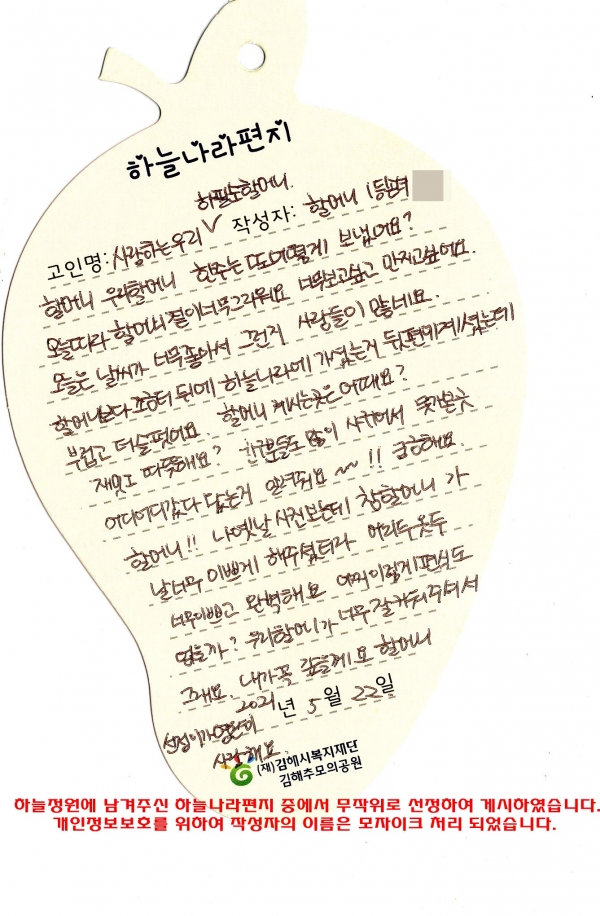 하늘나라편지
하필순할머니.
고인명: 사랑하는우리 ∨ 작성자: 할머니 1등
할머니 우리할머니 한주는 또어떻게 보냈어요?
오늘따라 할머니 너무그리워요 너무보고싶고 만지고싶어요.
오늘은 날씨가 너무좋아서 그런지 사람들이 많네요.
할머니보다 조금더 뒤에 하늘나라에 가셨는거 뒷편에계셨는데
부럽고 더슬펏어요 할머니 계시는곳은 어때요?
재밋고 따뜻해요? 친구분들도 많이 사귀어서 못가본곳
어디어디갔다 왔는거 알켜줘요 ~~ !! 궁금해요.
할머니!! 나옛날 사진보는데 참할머니 가
날너무 이쁘게 해주셨더라 머리두옷두
너무이쁘고 완벽해요 어찌이렇게편식도
없을까? 우리할머니가너무 잘키워주셔서
그래요. 내가꼭 갚을게요 할머니
2021년 5월 22일
사랑해요.
(재)김해시복지재단
김해추모의공원
하늘정원에 남겨주신 하늘나라편지 중에서 무작위로 선정하여 게시하였습니다.
개인정보보호를 위하여 작성자의 이름은 모자이크 처리 되었습니다.